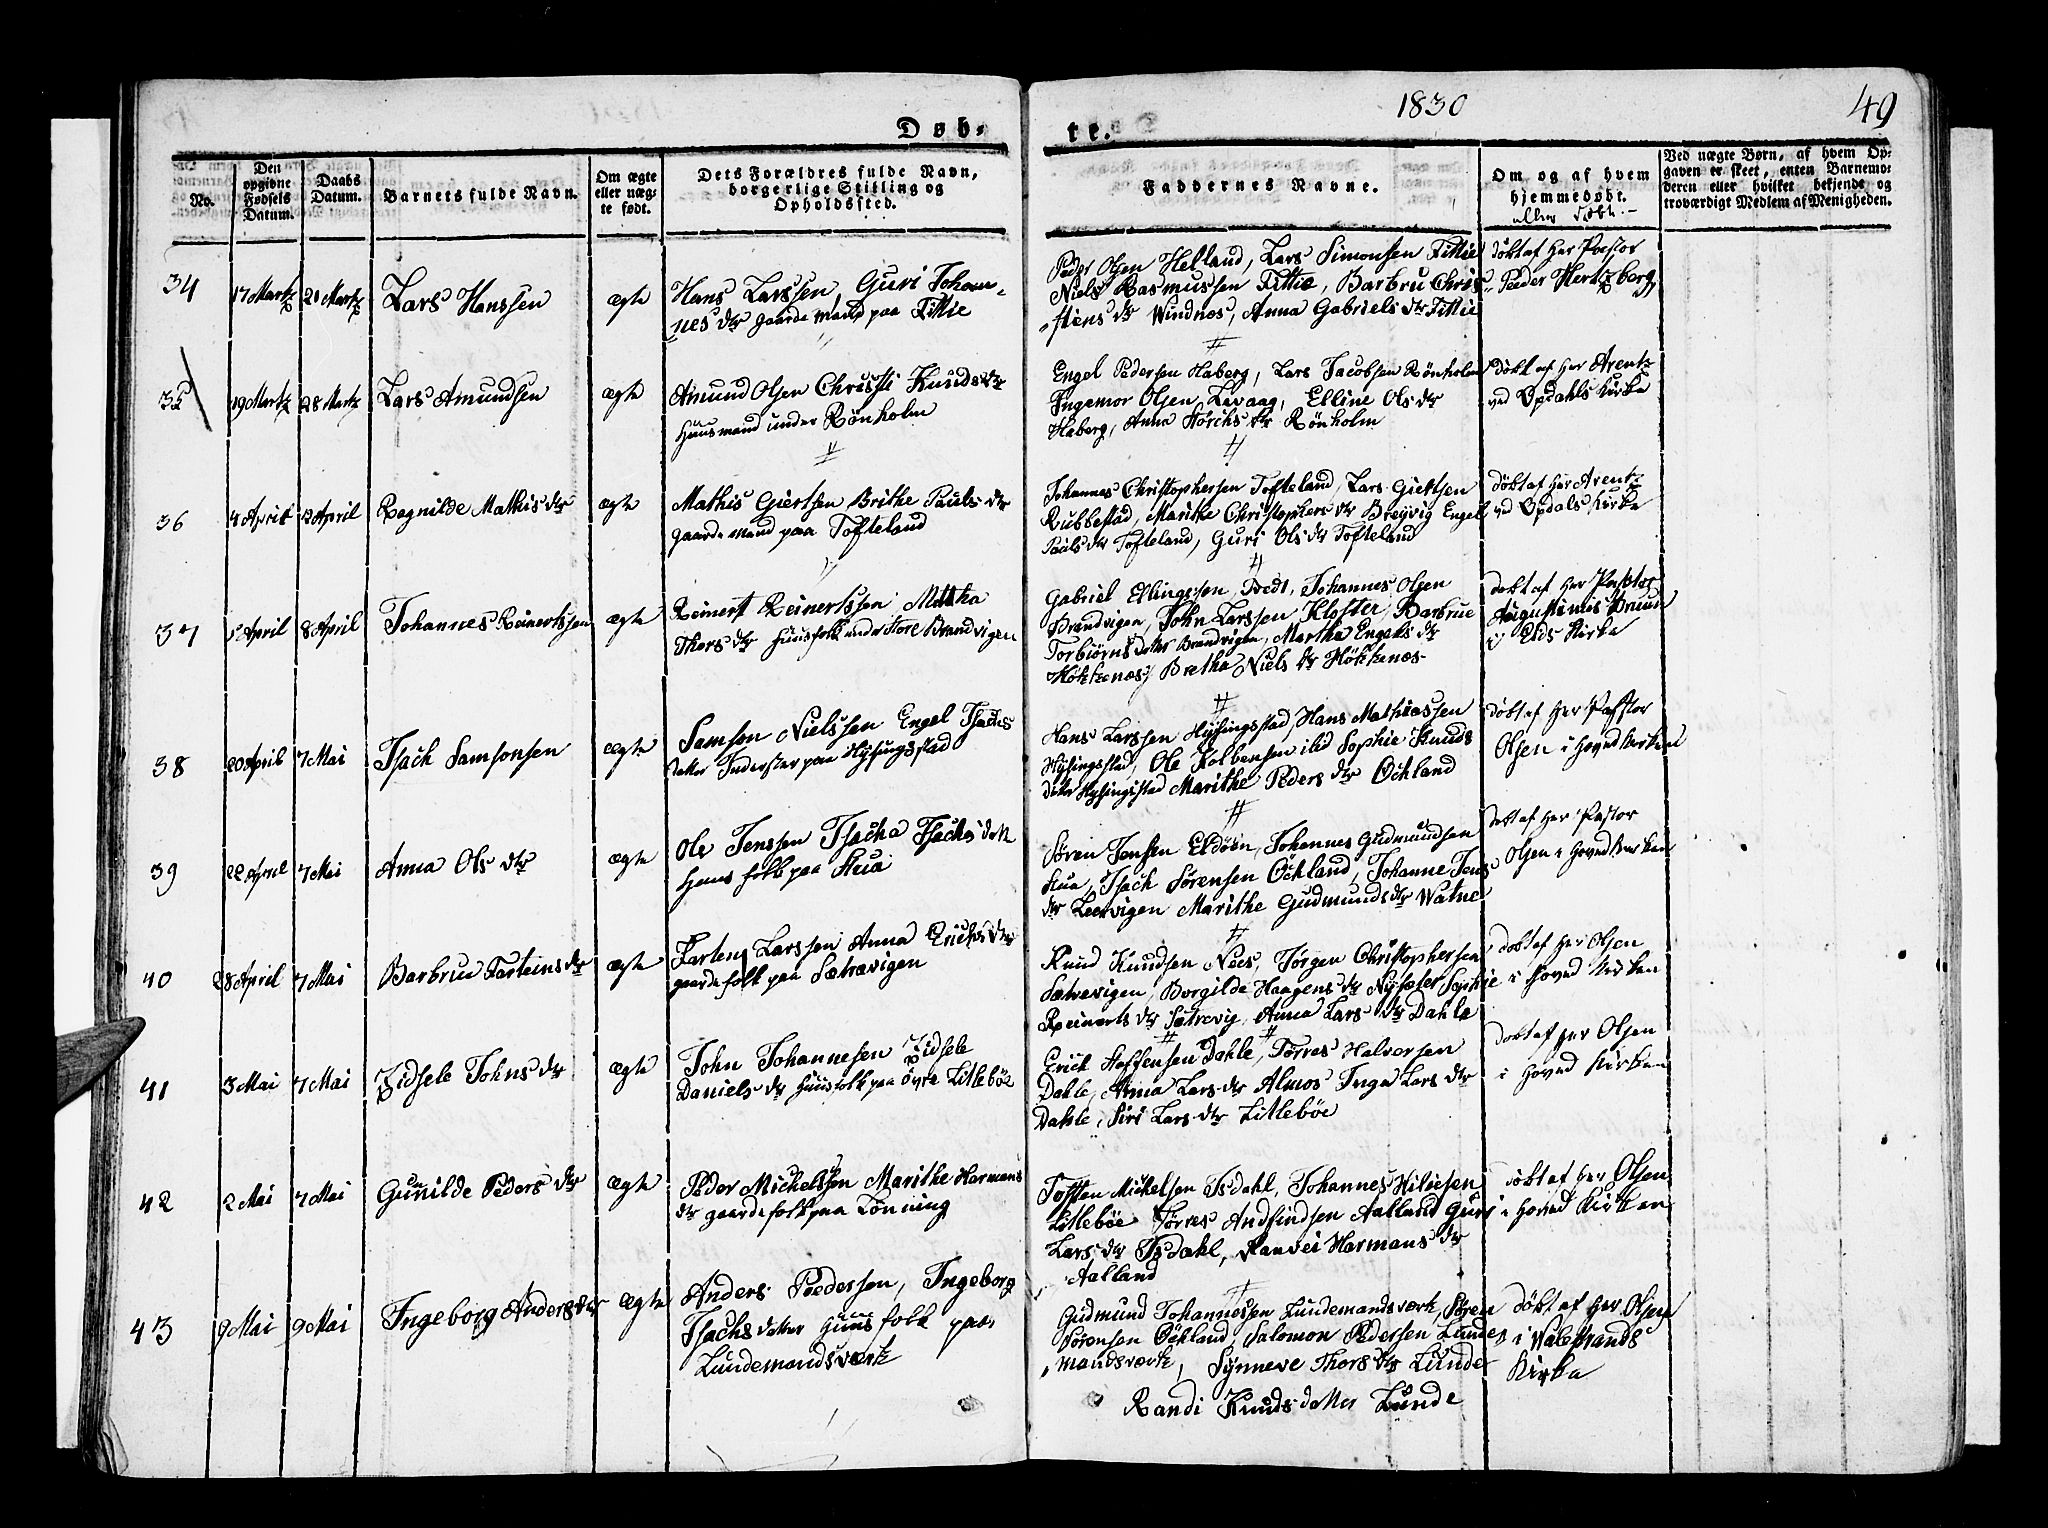 1830
49
Døb-
te.
No.
Den opgivne Fødsels Datum.
Daabs Datum.
Barnets fulde Navn.
Om ægte eller næg-te født.
Dets Forældres fulde Navn, borgerlige Stilling og Opholdssted.
Faddernes Navne.
Om og af hvem hjemmedøbt.
eller døbt.
Ved uægte Børn, af hvem Op-
gaven er skeet, enten Barnemo-
deren eller hvilket bekjendt og
troværdigt Medlem af Menigheden.
34
17 Martz
21 Martz
Lars Hanssen
ægte
Hans Larssen, Guri Johan-
nes dtr gaardemand paa Fittie
Peder Olsen Helland, Lars Simonsen Fittie
Niels Rasmussen Fittie, Barbru Chris
stens dtr Windnes, Anna Gabriels dtr Fittie
döbt af Her Pastor
Peder Hertzberg
35
19 Martz
28 Martz
Lars Amundsen
ægte
Amund Olsen Christi Knuds dtr
Huusmand under Rönholm
Engel Pedersen Haberg, Lars Jacobsen Rönholm
Ingemor Olsen, Levaag, Elline Ols dtr
Haberg, Anna Störchs dtr Rönholm
döbt af Her Arentz
ved Opdahls Kirke
36
4 April
April
Ragnilde Mathis dtr
ægte
Mathis Giertsen Brithe Pauls dtr
gaardemand paa Tofteland
Johannes Christophersen Tofteland, Lars Giertsen
Rubbestad, Marithe Christophers dtr Breivig Engel
Pauls dtr Tofteland, Guri Ols dtr Tofteland
döbt af Her Arentz
ved Opdals Kirke
37
April
8 April
Johannes Reinertssen
ægte
Reinert Reinertssen Mettha
Thors dtr Huusfolk under Store Brandvigen
Gabriel Ellingssen, Tvedt, Johannes Olsen
Brandvigen, John Larssen, Kloster, Barbrue
Torbiörns datter Brandvigen, Martha Engels dtr
Hökkenæs, Bretha Niels dtr Hökkenæs
döbt af Her Pastor
Augustinus Bruun
i Eids Kirke
38
20 April
7 Mai
Isach Samsonsen
ægte
Samson Nielssen Engel Isachs
datter Inderster paa Hysingsstad
Hans Larssen Hysingsstad, Hans Mathiassen
Hysingsstad, Ole Kolbensen ibid Sophie Knuds
datter Hysingsstad Marithe Peders dtr Öchland
döbt af Her Pastor
Olsen i Hoved Kirken
39
22 April
7 Mai
Anna Ols dtr
ægte
Ole Jenssen Isacha Isachs datt
Huus folk paa Stua
Sören Jensen Eldöen, Johannes Gudmundsen
Stua, Isach Sörensen Öchland, Johanne Jens
dtr Leervigen Marithe Gudmunds dtr Watne
döbt af Her Pastor
Olsen i Hoved Kirken
40
28 April
7 Mai
Barbrue Farteins dtr
ægte
Farten Larssen Anna Erichs dtr
gaardefolk paa Sætrevigen
Knud Knudsen Nees, Jörgen Christophersen
Sætrevigen, Borgilde Haagens dtr Nysæter Sophie
Reinerts dtr Sætrevig, Anna Lars dtr Dahle
döbt af Her Olsen
i Hoved Kirken
41
3 Mai
7 Mai
Zidsele Johns dtr
ægte
John Johannesen Zidsele
Daniels dtr Huusfolk paa Övre Litleböe
Erick Steffensen Dahle, Törres Halvorsen
Dahle, Anna Lars dtr Almos Inga Lars dtr
Dahle, Siri Lars dtr Litleböe
döbt af Her Olsen
i Hoved Kirken
42
2 Mai
7 Mai
Gunilde Peders dtr
ægte
Peder Michelssen Marithe Harmans
dtr gaardefolk paa Lönning
Tosten Mickelsen Isdahl, Johannes
Litleböe Törres Andfindsen Aalland Guri
Lars dtr Isdahl, Ranvei Harmans dtr
Aalland
döbt af Her Olsen
i Hoved Kirken
43
9 Mai
9 Mai
Ingeborg Anders dtr
ægte
Anders Pedersen, Ingeborg
Isachs datter Huus folk paa
Lundemandsværk
Gudmund Johannessen Lundemandsværk, Sören
Sörensen Öchland, Salomon Pedersen Lunde
mandsværk, Synneve Thors dtr Lunde
Randi Knuds datter Lunde
döbt af Her Olsen
i Walestrands
Kirke